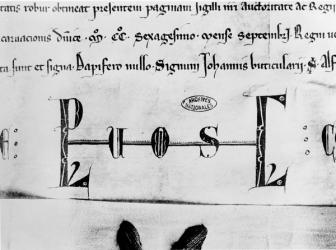 robur obtineat presentem paginam sigilli nri Auctoritate ac Regii
carnacionis Dnice · Mº · CCº · Sexagesimo · mense Septembri · Regni v
ta sunt et signa · Dapifero nullo · Signum Johannis buticularii · S · Alf
ARCHIVES NATIONALES
L U O S